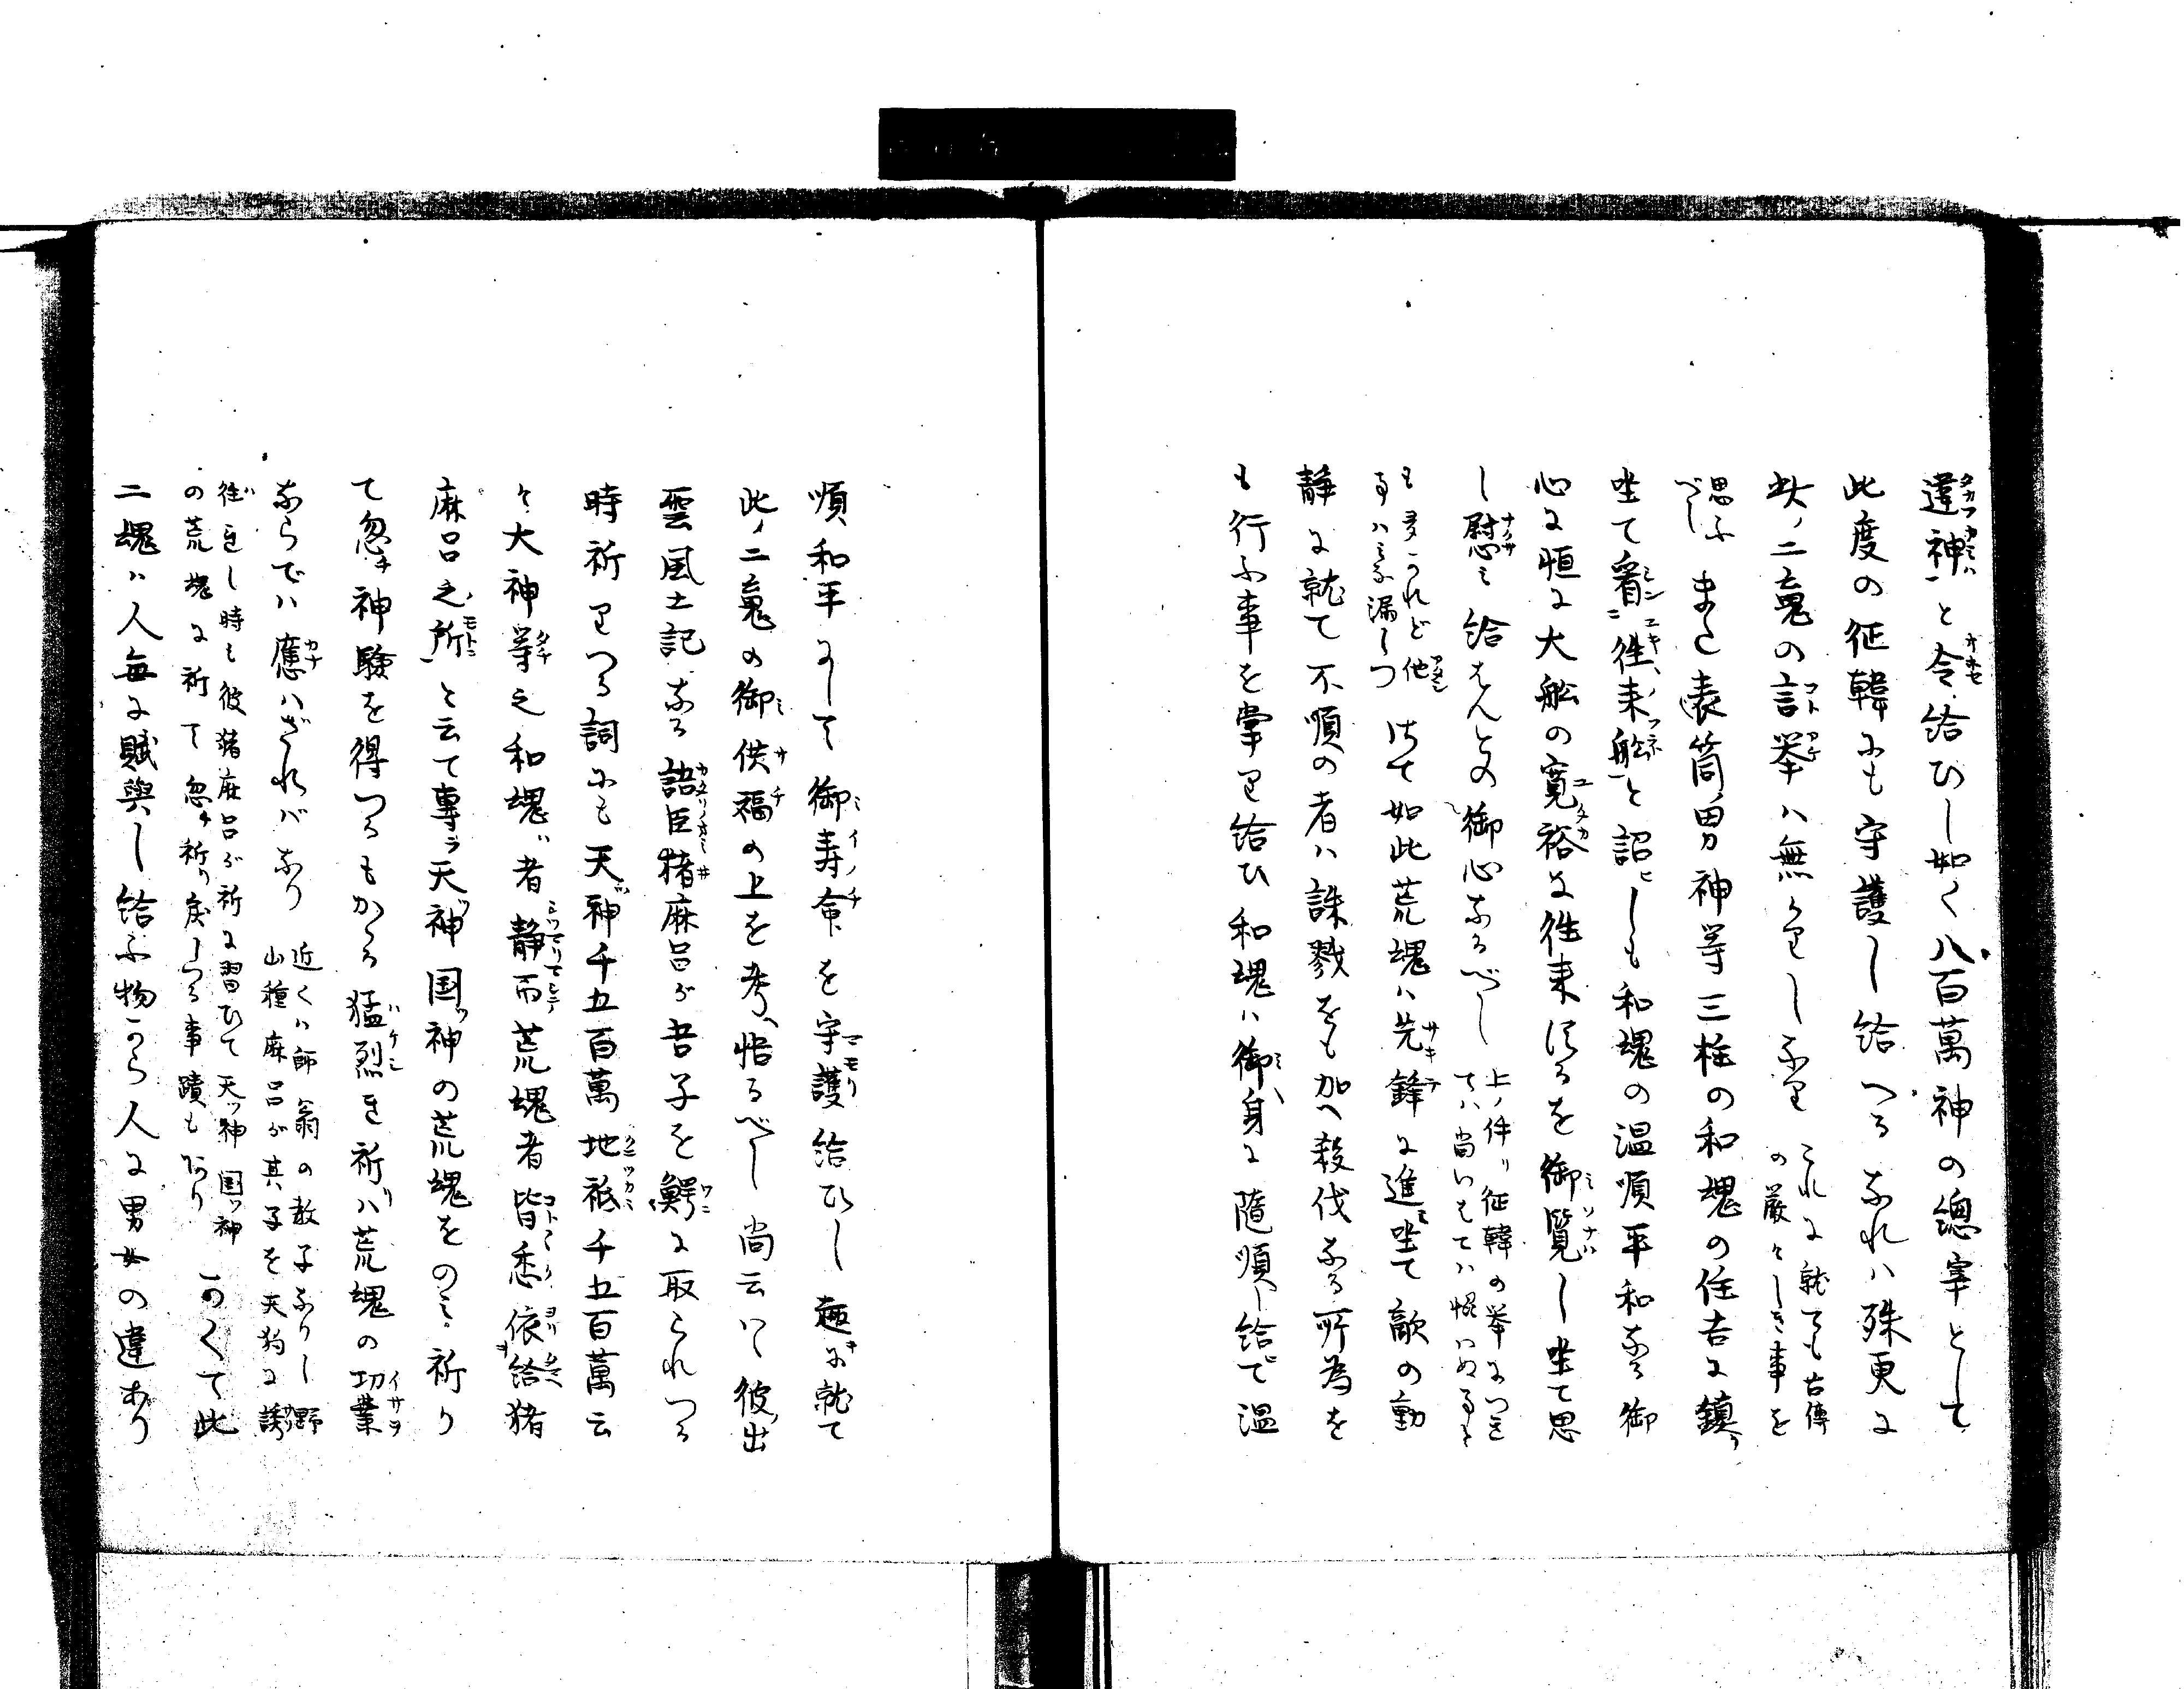 違神と令給ひし如く八百萬神の總宰として
此度の征韓にも守護し給へるなれハ殊更に
此ノ二魂の言挙ハ無くてし
これに就ても古傳
の厳々しき事を
思ふ
べし
また表筒男神等三柱の和魂の住吉に鎮
坐て看往来舩と詔しも和魂の温順平和なる御
心に恒に大舩の寛裕に往来けるを御覧し坐て思
し慰み給はんとの御心なるべし
上ノ件リ征韓の挙につき
てハ尚いはまく
も多かれど他
事ハみな漏しつ
はて如此荒魂ハ先鋒に進坐て敵の動
静に就て不順の者ハ誅戮をも加へ殺伐なる所為を
も行ふ事を掌り給ひ和魂ハ御身に隨順給て温
順和平にして御寿命を守護給ひし趣に就て
此ノ二魂の御供福の上を考へ悟るべし尚云ハヾ彼ノ出
雲風土記なる語臣猪麻呂が吾子を鰐に取られつる
時祈りつる詞にも天神千五百萬地祇千五百萬云
々大神等之和魂者静而荒魂者皆悉依給猪
麻呂之所と云て専ラ天ツ神国ツ神の荒魂をのミ祈り
て忽チ神験を得つるもかゝる猛烈き祈リハ荒魂の功業
ならでハ應ハざれバなり
近くハ師翁の教子なりし野
山種麻呂が其ノ子を天狗に誘
往れし時も彼猪麻呂が祈に習ひて天ツ神国ツ神
の荒魂に祈て忽チ祈り戻しつる事蹟もあり
かくて此
二魂ハ人毎に賦與し給ふ物から人に男女の違あり